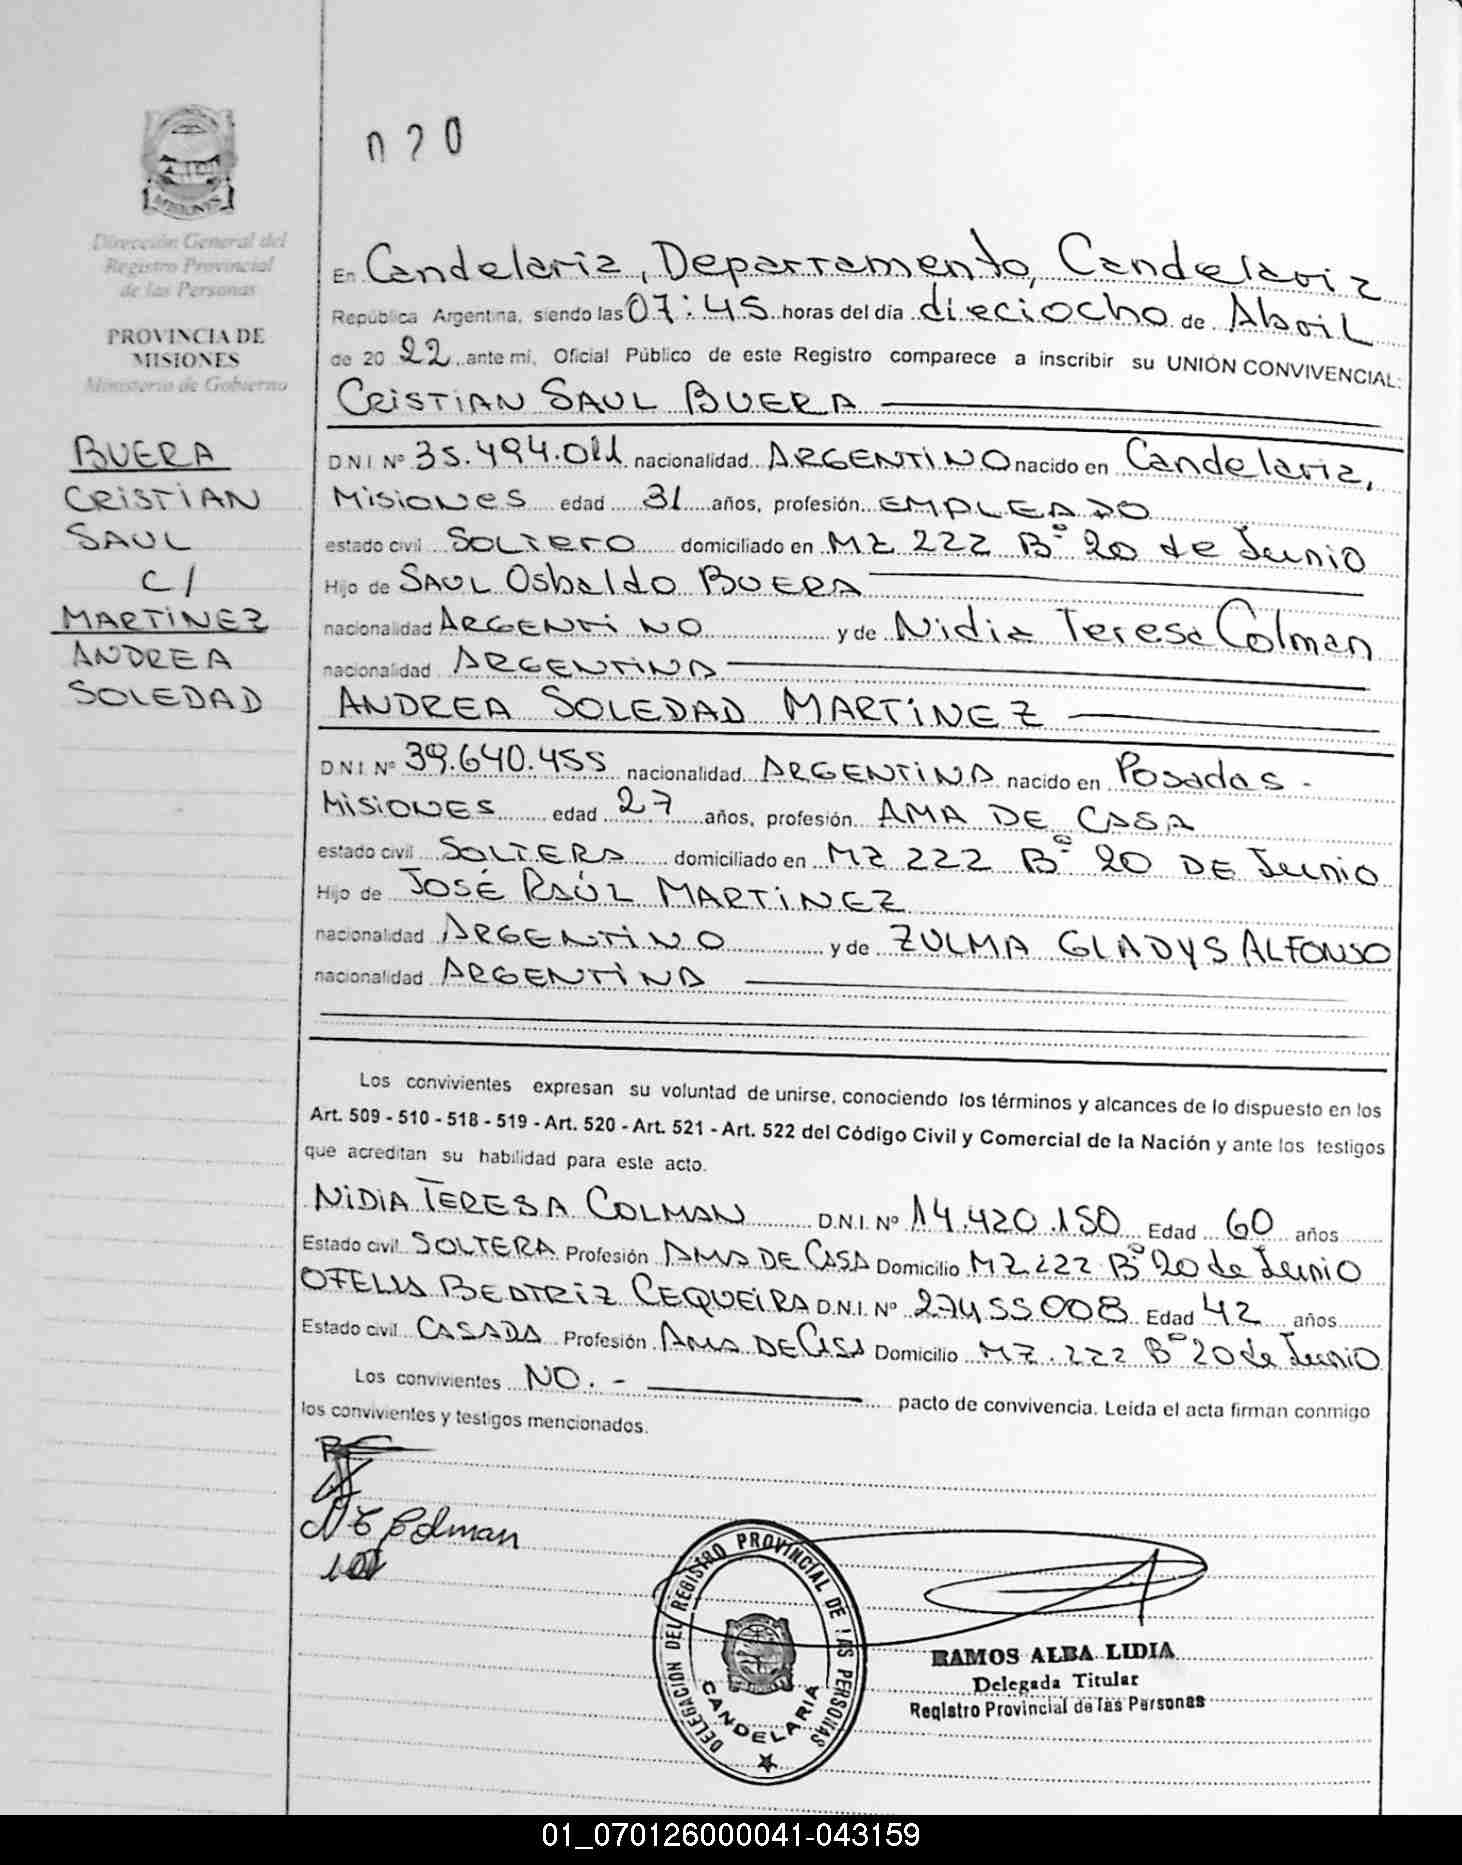 020
Dirección General del
Registro Provincial
de las Personas
PROVINCIA DE
MISIONES
Ministerio de Gobierno
BUERA
CRISTIAN
SAUL
C/
MARTINEZ
ANDREA
SOLEDAD
En Candelaria, Departamento, Candelaria
República Argentina, siendo las 07:45 horas del día dieciocho de Abril
de 2022 ante mí, Oficial Público de este Registro comparece a inscribir su UNIÓN CONVIVENCIAL:
CRISTIAN SAUL BUERA
D.N.I. Nº 35.494.011 nacionalidad ARGENTINO nacido en Candelaria,
Misiones edad 31 años, profesión EMPLEADO
estado civil Soltero domiciliado en MZ 222 Bº 20 de Junio
Hijo de SAUL Osbaldo BUERA
nacionalidad ARGENTINO y de Nidia Teresa Colman
nacionalidad ARGENTINA
ANDREA SOLEDAD MARTINEZ
D.N.I. Nº 39.640.455 nacionalidad ARGENTINA nacido en Posadas -
MISIONES edad 27 años, profesión AMA DE CASA
estado civil SOLTERA domiciliado en MZ 222 Bº 20 DE Junio
Hijo de JOSÉ RAÚL MARTINEZ
nacionalidad ARGENTINO y de ZULMA GLADYS ALFONSO
nacionalidad ARGENTINA
Los convivientes expresan su voluntad de unirse, conociendo los términos y alcances de lo dispuesto en los
Art. 509 - 510 - 518 - 519 - Art. 520 - Art. 521 - Art. 522 del Código Civil y Comercial de la Nación y ante los testigos
que acreditan su habilidad para este acto.
NIDIA TERESA COLMAN D.N.I. Nº 14.420.150 Edad 60 años
Estado civil SOLTERA Profesión AMA DE CASA Domicilio MZ 222 Bº 20 de Junio
OFELIA BEATRIZ CEQUEIRA D.N.I. Nº 27455008 Edad 42 años
Estado civil CASADA Profesión AMA DE CASA Domicilio MZ. 222 Bº 20 de Junio
Los convivientes NO. - pacto de convivencia. Leída el acta firman conmigo
los convivientes y testigos mencionados.
N T Colman
DELEGACION DEL REGISTRO PROVINCIAL DE LAS PERSONAS
CANDELARIA
RAMOS ALBA LIDIA
Delegada Titular
Registro Provincial de las Personas
01_070126000041-043159